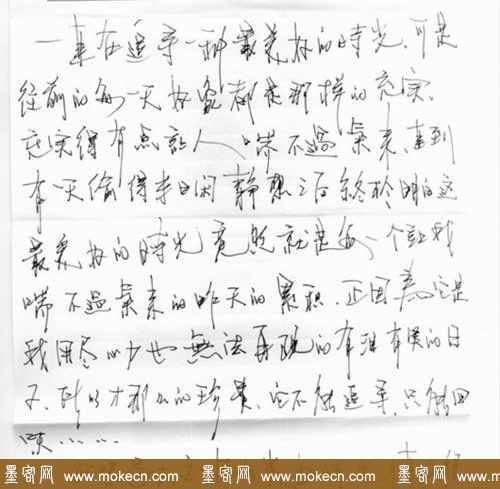 一直在追寻一种最美好的時光,可是
從前的每一天好象都是那样的充实、
充实得有点讓人喘不過氣来、直到
有一天偷得半日闲靜想之后终於明白这
最美好的時光竟然就是每一个讓我
喘不過氣来的昨天的累积.正因為它是
我用尽心力也無法再现的有泪有笑的日
子、所以才那么的珍贵、它不能追寻、只能回
味……
墨客网 www.mokecn.com 墨客网 www.mokecn.com 墨客网 www.mokecn.com